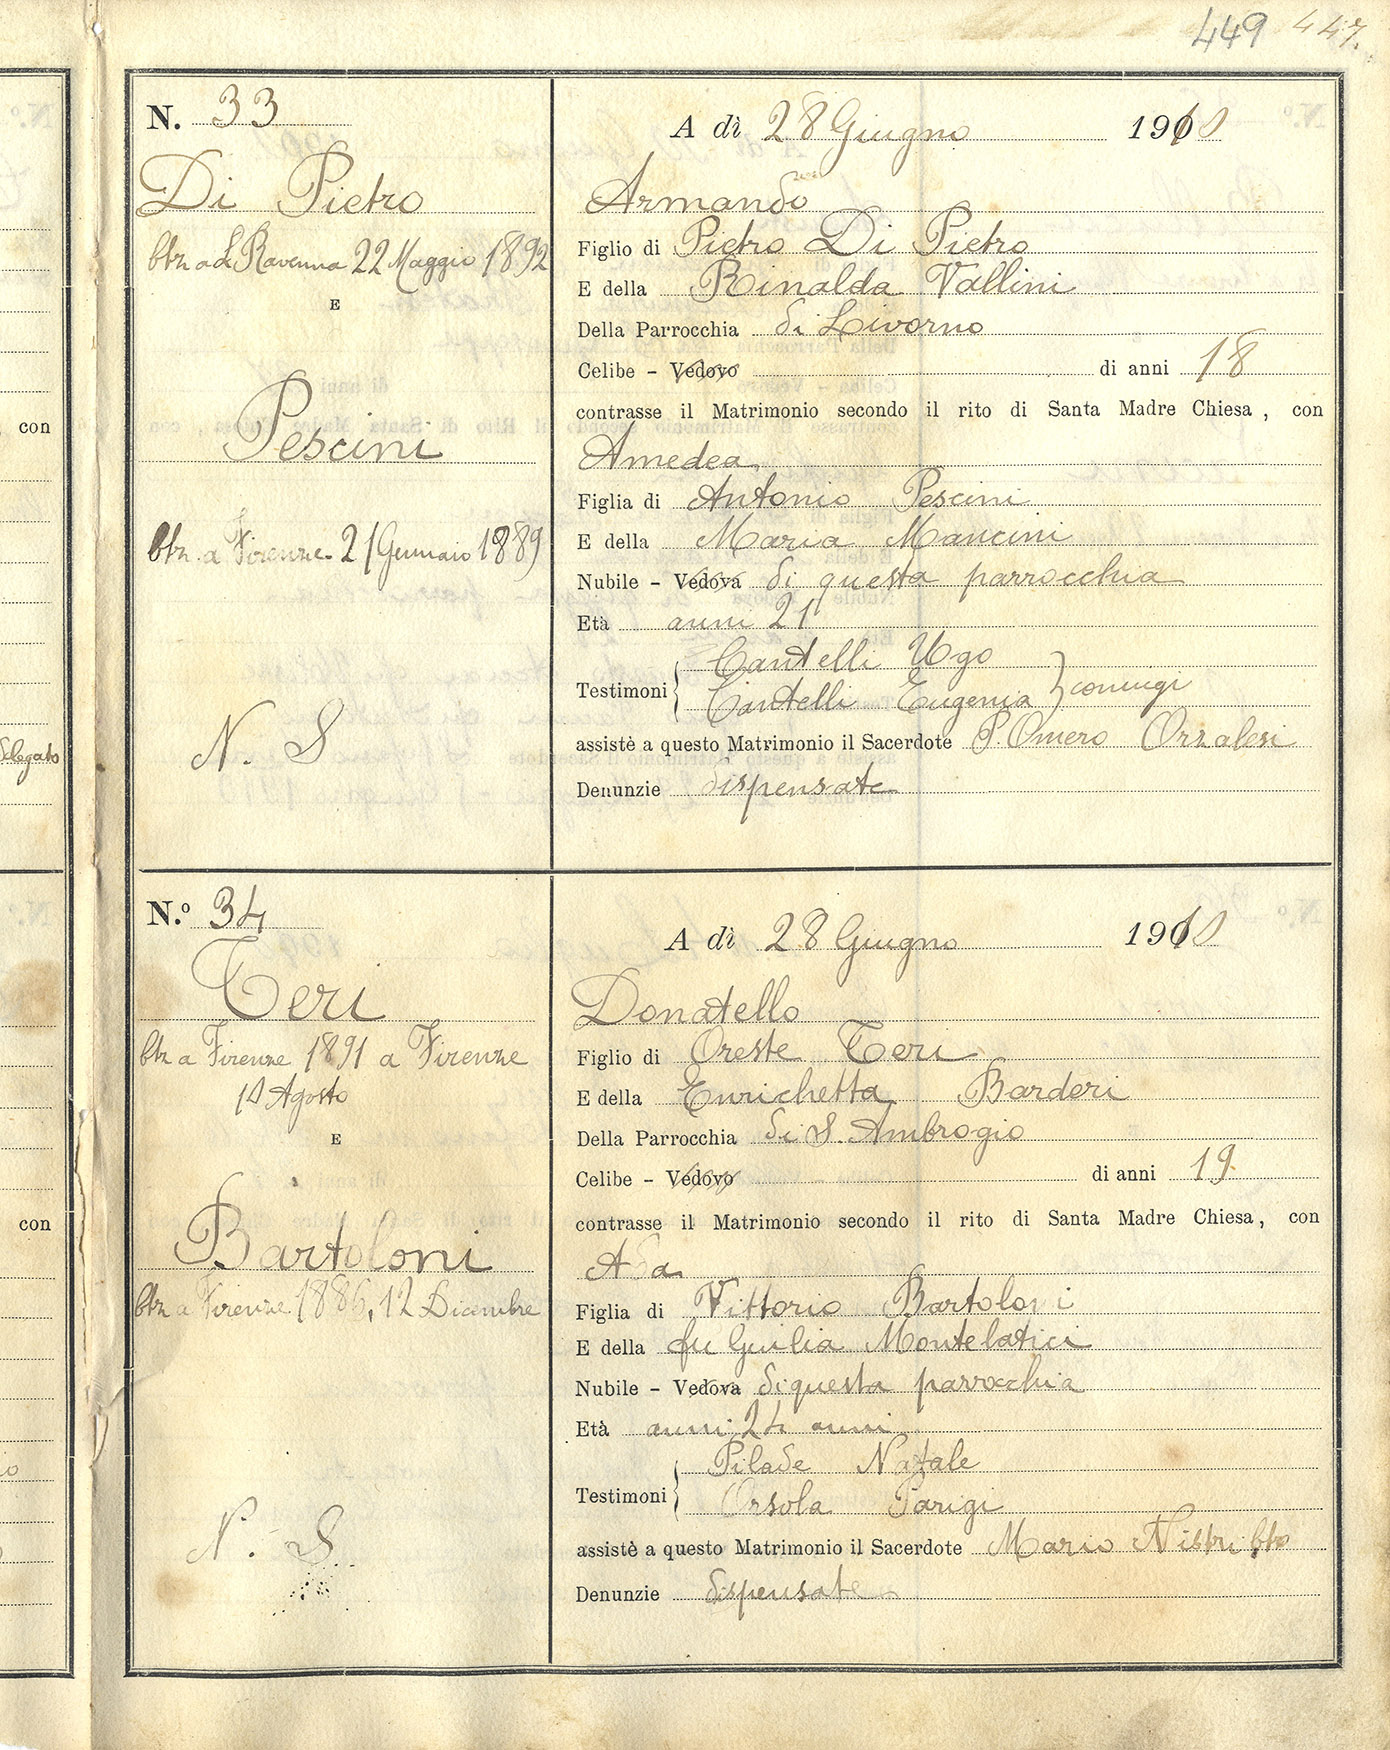 449 447.
N. 33
Di Pietro
btz a Ravenna 22 Maggio 1892
E
Pescini
btz. a Firenze 21 Gennaio 1889
N. S
A dì 28 Giugno 1910
Armando
Figlio di Pietro Di Pietro
E della Rinalda Vallini
Della Parrocchia di Livorno
Celibe - Vedovo di anni 18
contrasse il Matrimonio secondo il rito di Santa Madre Chiesa, con
Amedea
Figlia di Antonio Pescini
E della Maria Mancini
Nubile - Vedova di questa parrocchia
Età anni 21
Testimoni Cantelli Ugo
Cantelli Eugenia coniugi
assistè a questo Matrimonio il Sacerdote P. Omero Orzalesi
Denunzie dispensate
N.º 34
Teri
btz a Firenze 1891 a Firenze
10 Agosto
E
Bartoloni
btz a Firenze 1886, 12 Dicembre
N. S.
A dì 28 Giugno 1910
Donatello
Figlio di Oreste Teri
E della Enrichetta Barderi
Della Parrocchia di S. Ambrogio
Celibe - Vedovo di anni 19
contrasse il Matrimonio secondo il rito di Santa Madre Chiesa, con
Ada
Figlia di Vittorio Bartoloni
E della fu Giulia Montelatici
Nubile - Vedova di questa parrocchia
Età anni 24 anni
Testimoni Pilade Natale
Orsola Parigi
assistè a questo Matrimonio il Sacerdote Mario Nistri
Denunzie dispensate
con
delegato
con